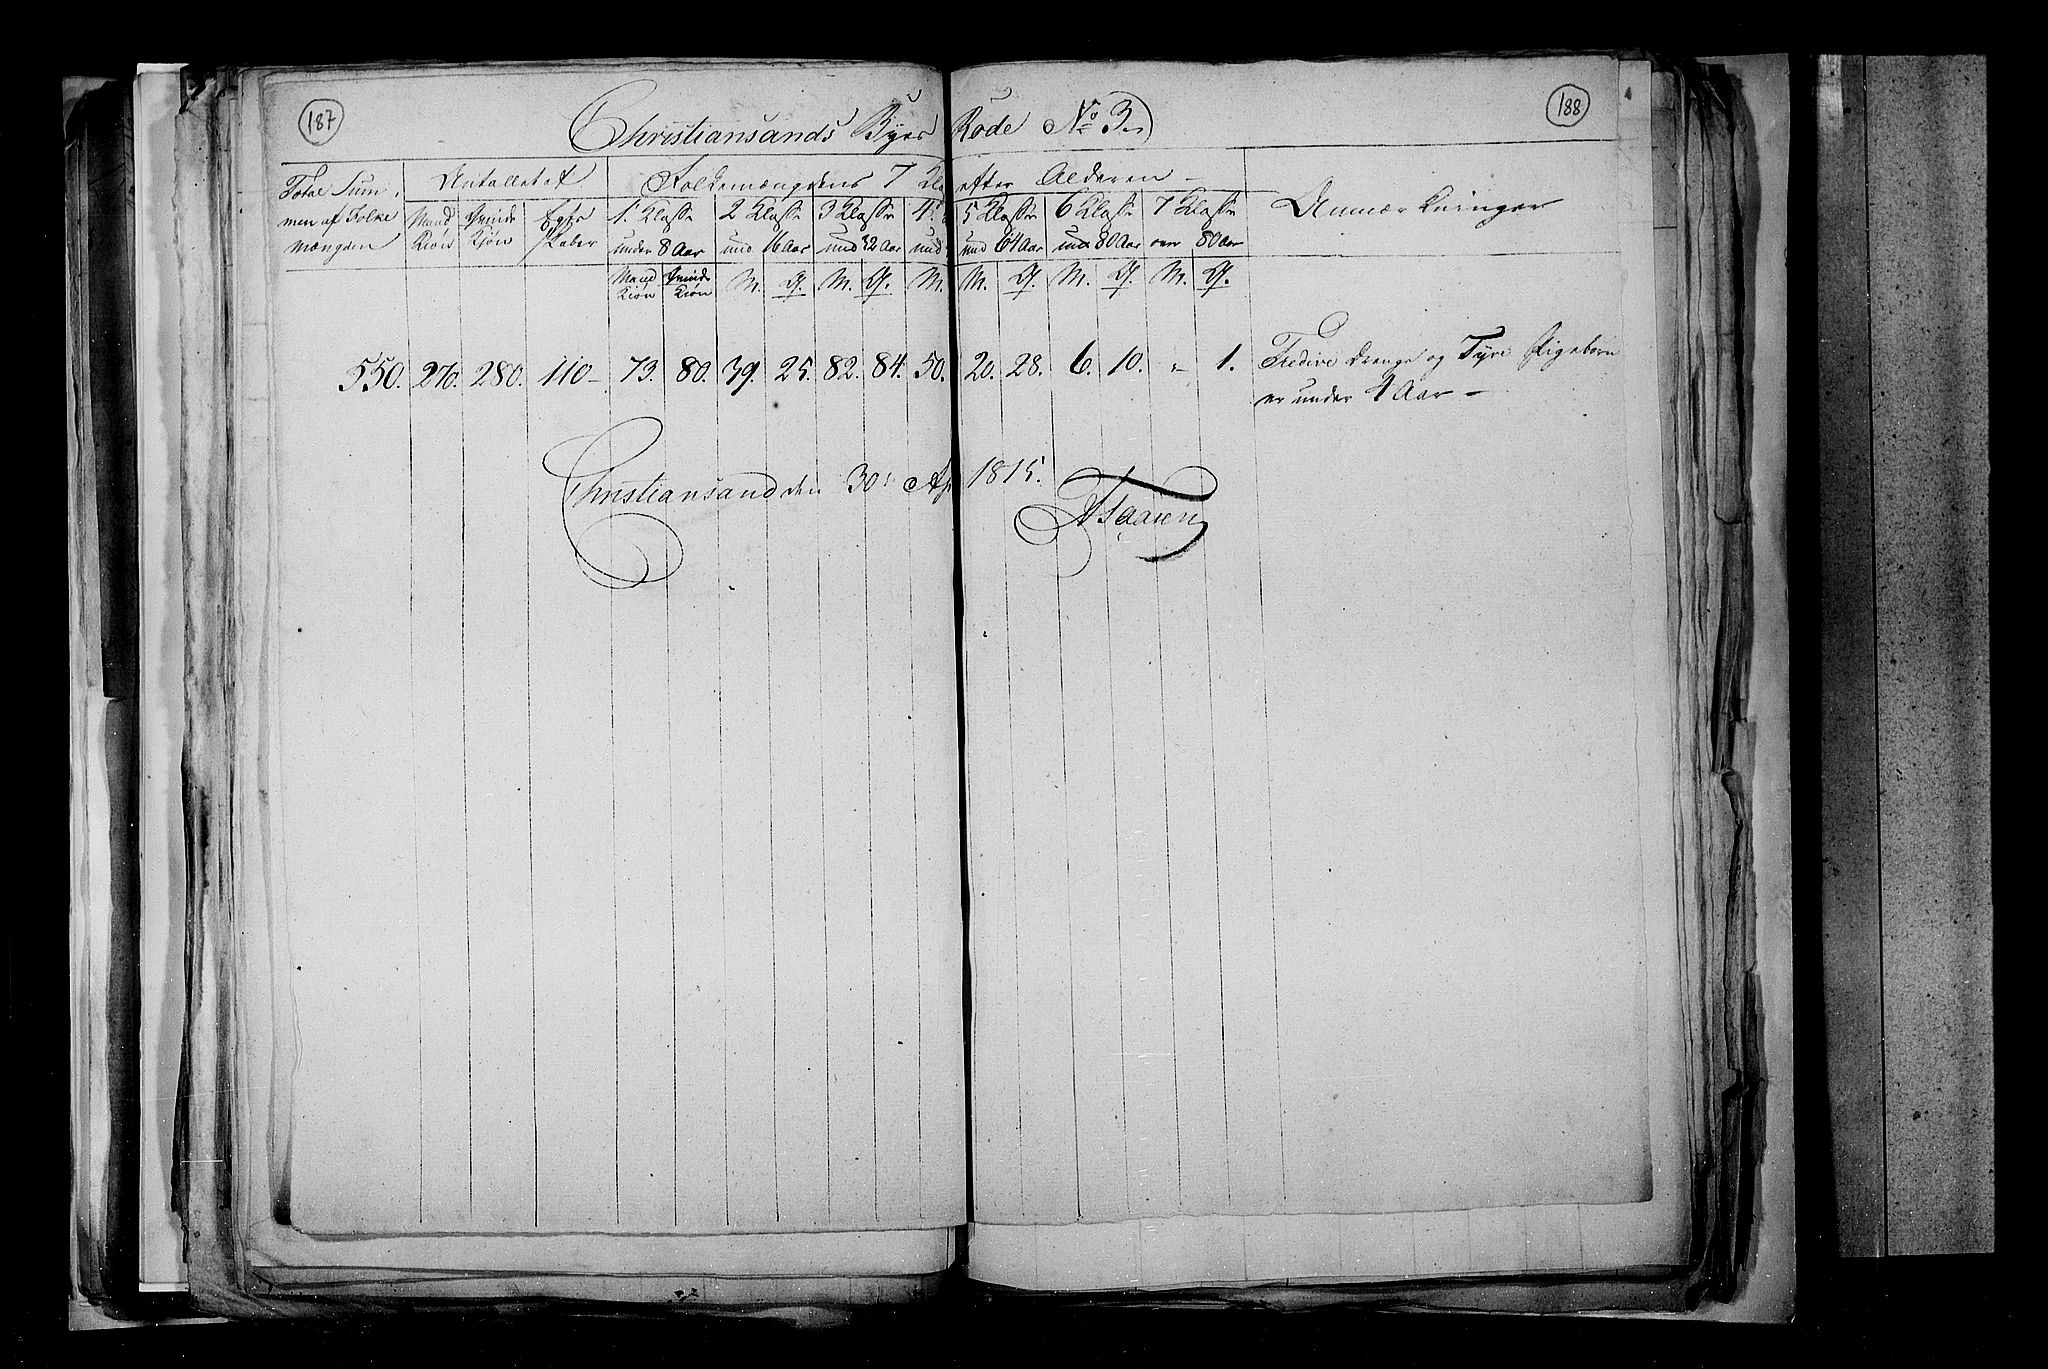 187
188
Christiansands Byes Rode No 3
Total Sum-
men af Folke
Mængden
Antallet af
Folkemængdens 7 Kla efter Alderen -
Anmærkninger
Mand
Kiøn
Qvinde
Kiøn
Egte
skaber
1. Klasse
under 8 Aar
2 Klasse
und 16 Aar
3 Klasse
und 32 Aar
4.
und
5 Klasse
und 64 Aar
6 Klasse
und 80 Aar
7 Klasse
over 80 Aar
Mand
Kiøn
Qvinde
Kiøn
M. Q. M. Q. M. M. Q. M. Q. M. Q.
550. 270. 280. 110 - 73. 80. 39. 25. 82. 84. 50. 20. 28. 6. 10. " 1. Tredive Drenge og Tyve Pigebørn
er under 1 Aar -
Christiansand den 30 Ap 1815.